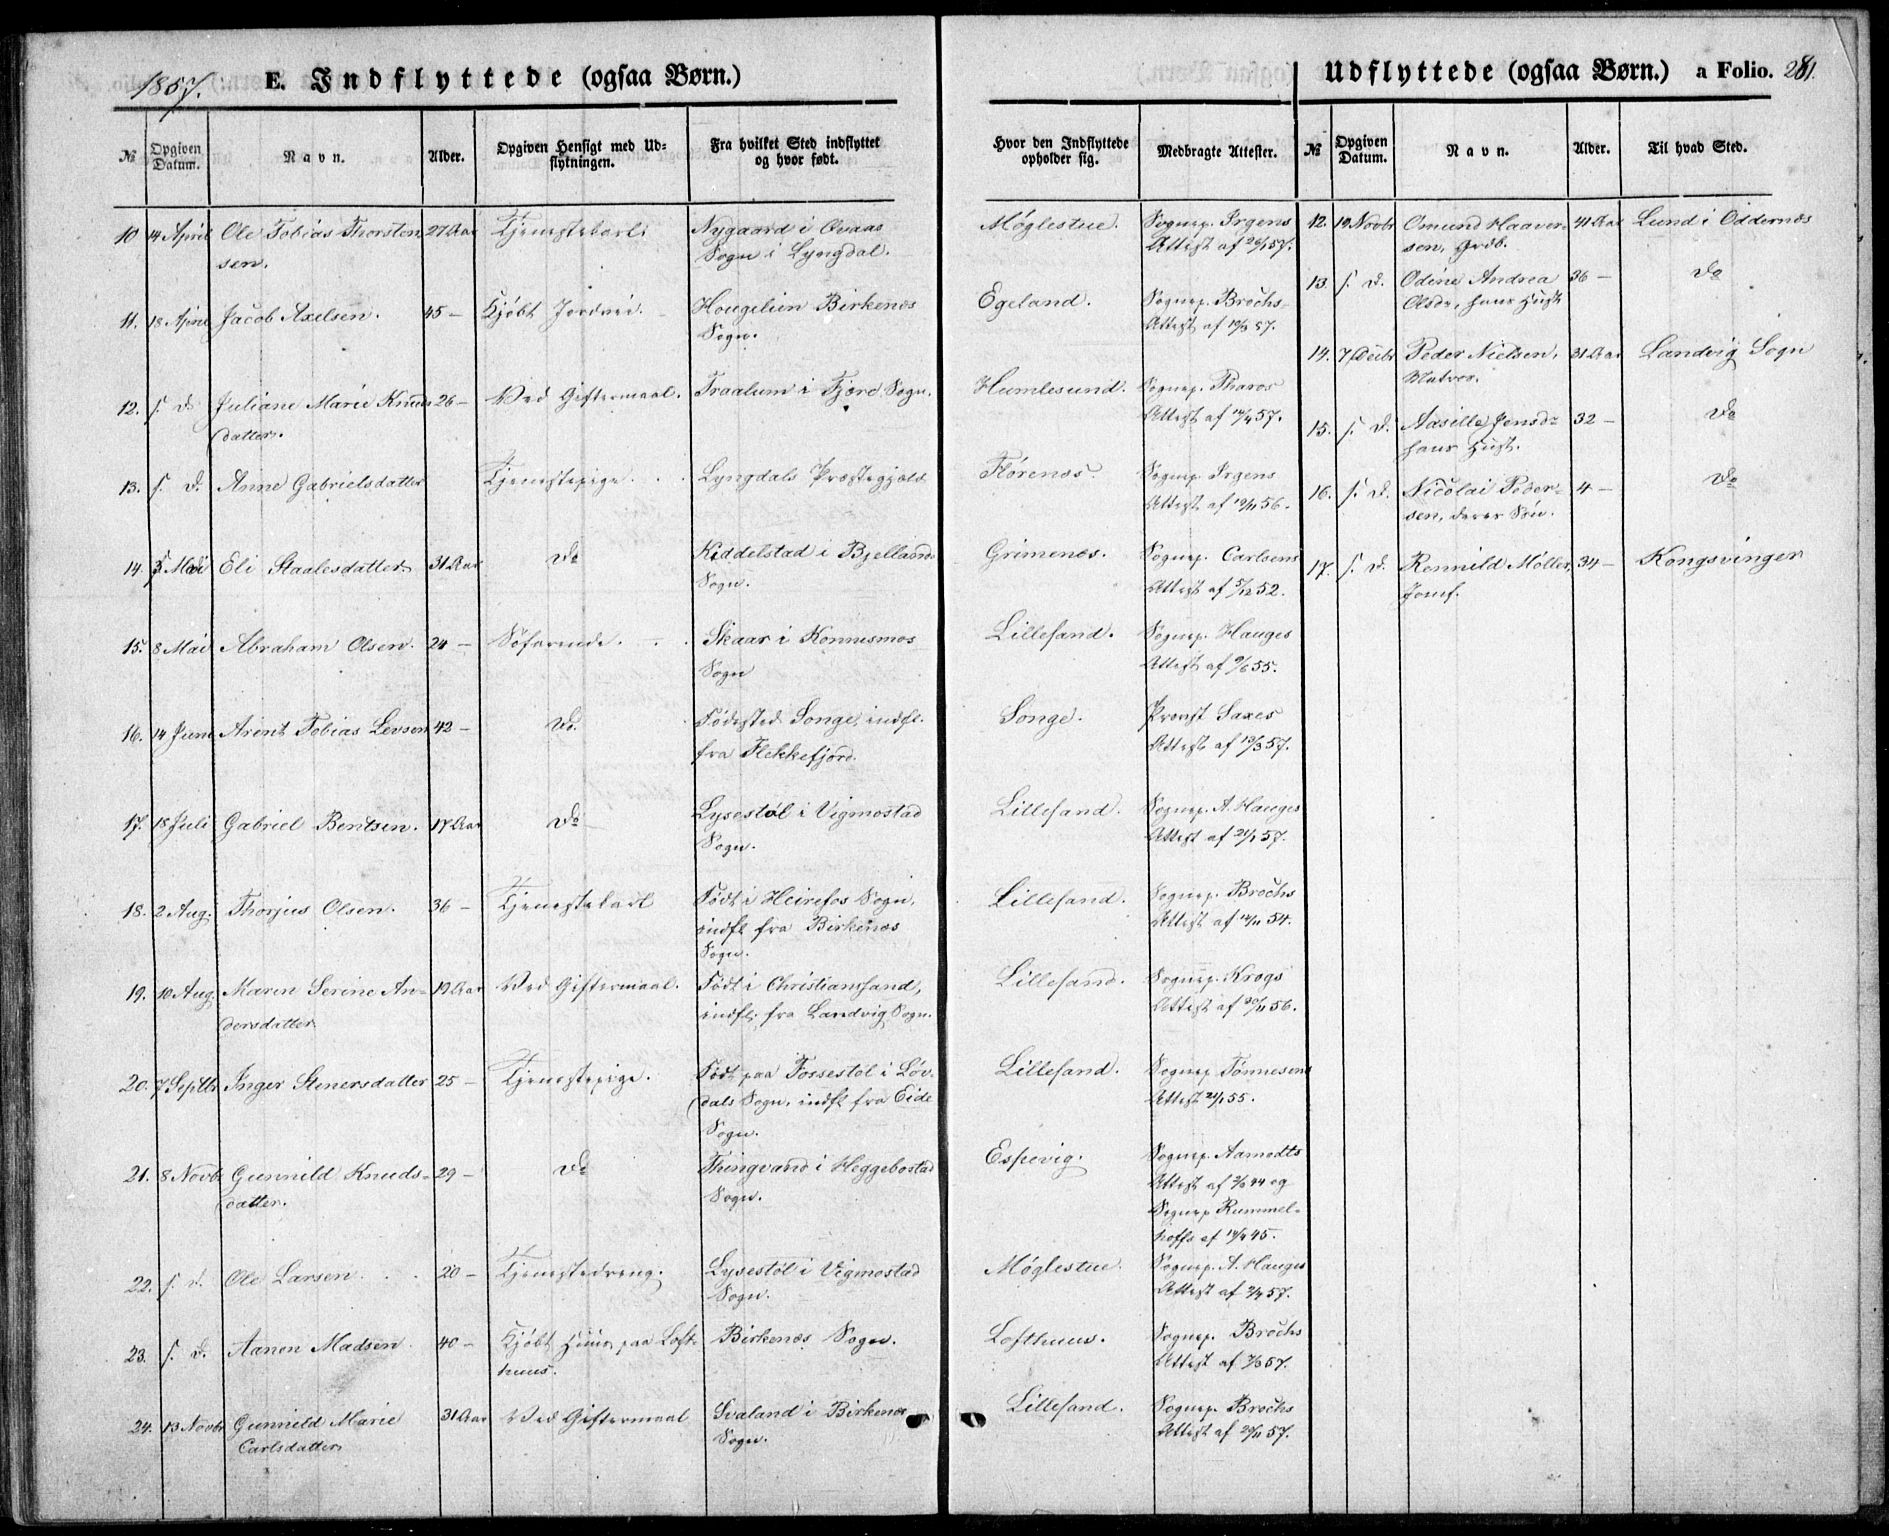 1857.
E. Indflyttede (ogsaa Børn.)
№ | Opgiven Datum. | Navn. | Alder. | Opgiven Hensigt med Udflytningen. | Fra hvilket Sted indflyttet og hvor født. | Hvor den Indflyttede opholder sig. | Medbragte Attester.
10 14 April Ole Tobias Thorsten 27 Aar Tjenestekarl Nygaard i Qvaas Møglestue. Sognep. Irgens
sen. Sogn i Lyngdal. Attest af 57.
11. 18 April Jacob Axelsen. 45 – Kjøbt Jordvei. Hougelien Birkenes Egeland. Sognep. Brochs
Sogn. Attest af 57.
12. s. D. Juliane Marie Knuds 26 – Ved Giftermaal. Traalum i Fjære Sogn. Humlesund. Sognep. Tharos
datter. Attest af 14/4 57.
13. s. D. Anne Gabrielsdatter Tjenestepige . . Lyngdals Præstegjeld Flørenes. Sognep. Irgens
Attest af 56.
14. Mai Eli Staalesdatter 31 Aar Do Kiddelstad i Bjelland Grimenes. Sognep. Carlsens
Sogn. Attest af 5/12 52.
15. 8 Mai Abraham Olsen. 24 – Søfarende. Skaar i Konnismos Lillesand. Sognep. Hauges
Sogn Attest af 55.
16. 14 Juni Arent Tobias Levsen 42 – Do. Fødested Songe, indfl. Songe. Provst Saxes
fra Flekkefjord. Attest af 13/3 57.
17. 18 Juli Gabriel Bentsen. 17 Aar Do Lysestøl i Vigmostad Lillesand. Sognep. A. Hauges
Sogn. Attest af 57.
18. 2 Aug. Thorjus Olsen. 36 – Tjenestekarl Født i Heirefos Sogn, Lillesand. Sognep. Brochs
indfl fra Birkenes Attest af 54.
Sogn.
19. 10 Aug. Maren Serine An- 19 Aar Ved Giftermaal. Født i Christiansand, Lillesand. Sognep. Krogs
dersdatter indfl. fra Landvig Sogn. Attest af 56.
20. 7 Septbr Inger Stenersdatter 25 – Tjenestepige. Født paa Fossestøl i Løv- Lillesand. Sognep Tønnesens
dals Sogn, indfl fra Eide Attest 55.
Sogn.
21. 8 Novbr Gunnild Knuds- 29 – Do Thingvand i Heggebostad Espevig. Sognep. Aamodts
datter. Sogn. Attest af 44 og
Sognep Rummel-
hoffs af 45.
22. s. D. Ole Larsen . . 20 – Tjenestedreng. Lysestøl i Vigmostad Møglestue. Sognep. A. Hauges
Sogn. Attest af 57.
23. s. D. Aanon Madsen. 40 – Kjøbt Huus paa Loft- Birkenes Sogn. Lofthuus. Sognep. Brochs
huus. Attest af 57.
24. 13 Novbr Gunnild Marie 31 Aar Ved Giftermaal Svaland i Birkenes Lillesand. Sognep. Brochs
Carlsdatter Sogn. Attest af 57.
Udflyttede (ogsaa Børn.) a Folio. 281.
№ | Opgiven Datum. | Navn. | Alder. | Til hvad Sted.
12. 10 Novbr Omund Haaver- 41 Aar Lund i Oddernes
sen, Grdb.
13. s. D. Odine Andrea 36 – Do
Olsdr, hans Hust
14. 7 Decbr Peder Nielsen, 31 Aar Landvig Sogn
Matros.
15. s. D. Aasille Jensdr 32 – Do
hans Hust.
16. s. D. Nicolai Peder- 4 – Do
sen, deres Søn.
17. s. D. Ronnild Møller, 34 – Kongsvinger
Jomf.